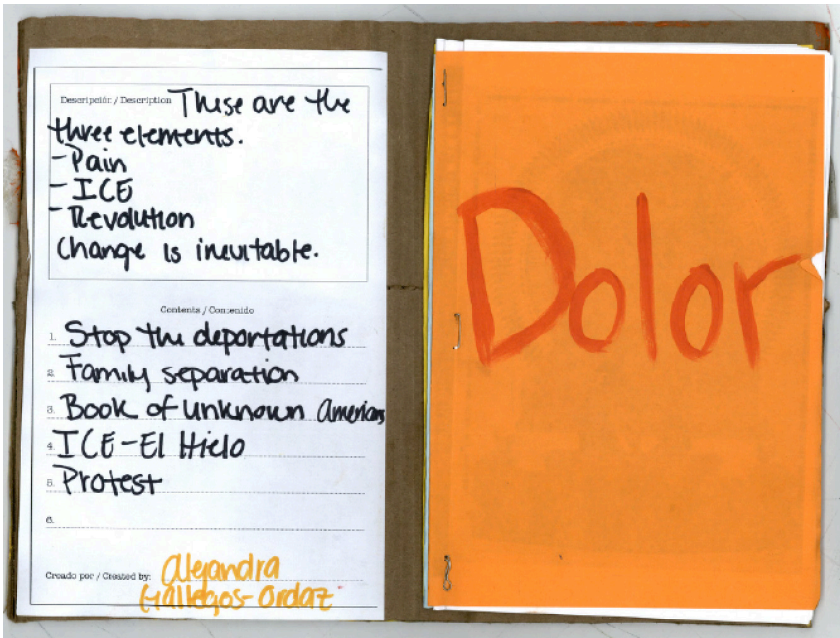 Descripción / Description These are the
three elements.
- Pain
- ICE
- Revolution
Change is inevitable.
Contents / Contenido
1. Stop the deportations
2. Family separation
3. Book of Unknown Americans
4. ICE-El Hielo
5. Protest
6.
Creado por / Created by: Alejandra
Gallegos-Ordaz
Dolor